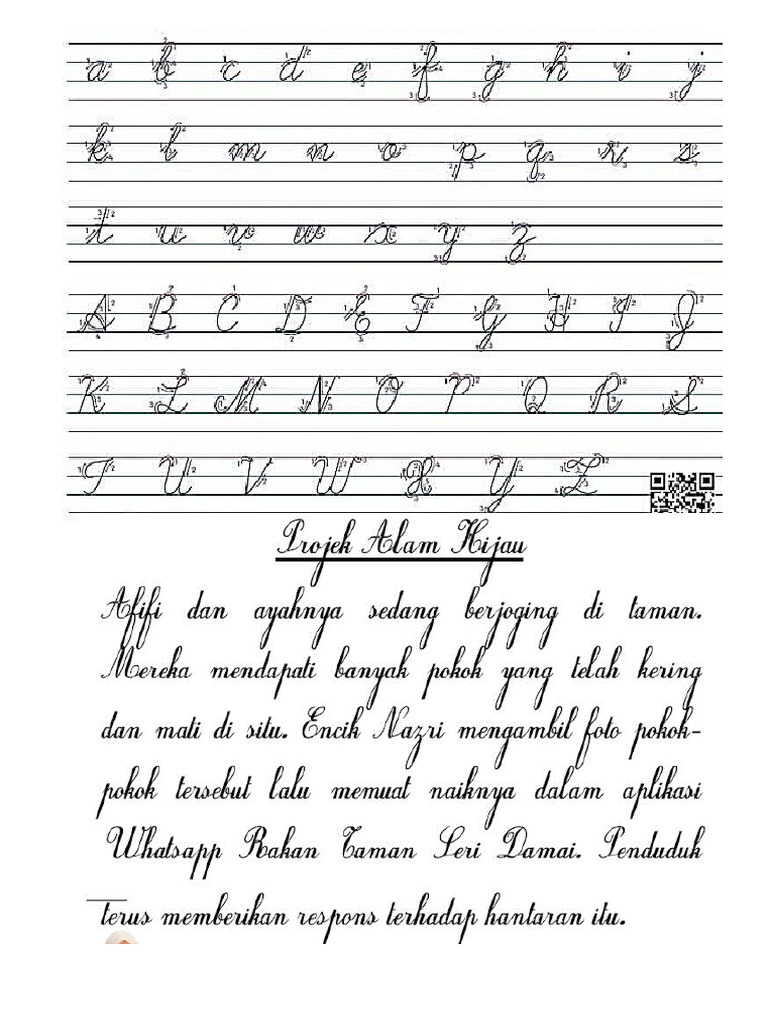 a b c d e f g h i j
k l m n o p q r s
t u v w x y z
A B C D E F G H I J
K L M N O P Q R S
T U V W X Y Z
Projek Alam Hijau
Afifi dan ayahnya sedang berjoging di taman.
Mereka mendapati banyak pokok yang telah kering
dan mati di situ. Encik Nazri mengambil foto pokok-
pokok tersebut lalu memuat naiknya dalam aplikasi
Whatsapp Rakan Taman Seri Damai. Penduduk
terus memberikan respons terhadap hantaran itu.